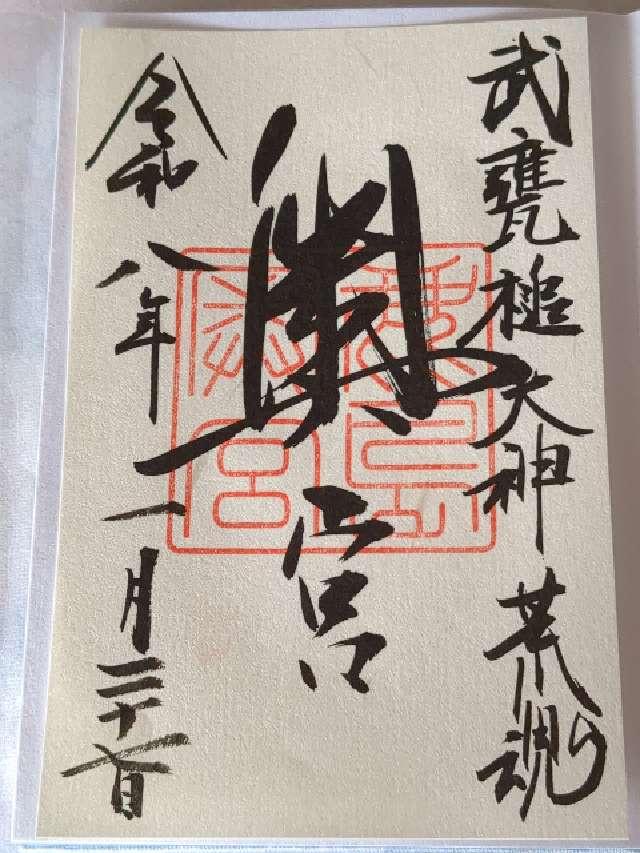 武甕槌大神荒魂
奥宮
令和八年一月二十七日